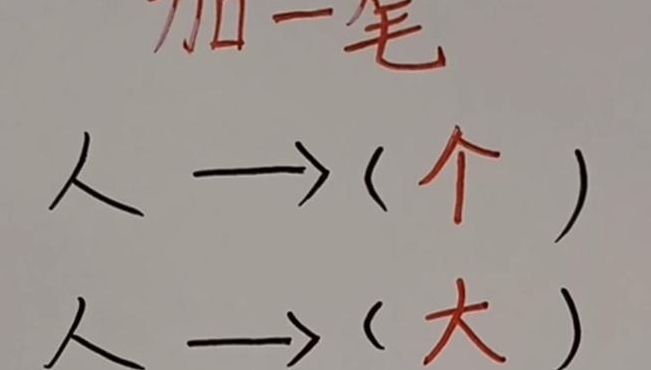 加一笔
人 → ( 个 )
人 → ( 大 )